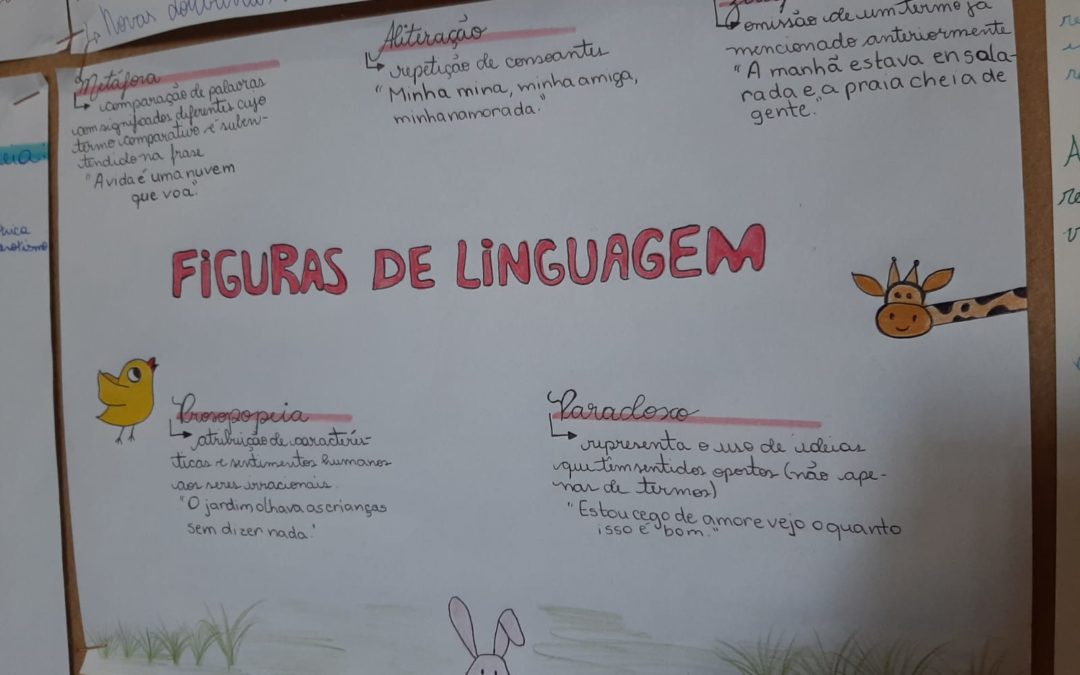 Novas
Metáfora
comparação de palavras
com significados diferentes cujo
termo comparativo é suben-
tendido na frase
"A vida é uma nuvem
que voa".
Alitiração
repetição de consoantes
"Minha mina, minha amiga,
minha namorada."
emissão de um termo já
mencionado anteriormente
"A manhã estava ensola-
rada e a praia cheia de
gente."
FIGURAS DE LINGUAGEM
Prosopopeia
atribuição de caracterís-
ticas e sentimentos humanos
aos seres irracionais.
"O jardim olhava as crianças
sem dizer nada."
Paradoxo
representa o uso de ideias
que têm sentidos opostos (não ape-
nas de termos)
"Estou cego de amor e vejo o quanto
isso é bom."